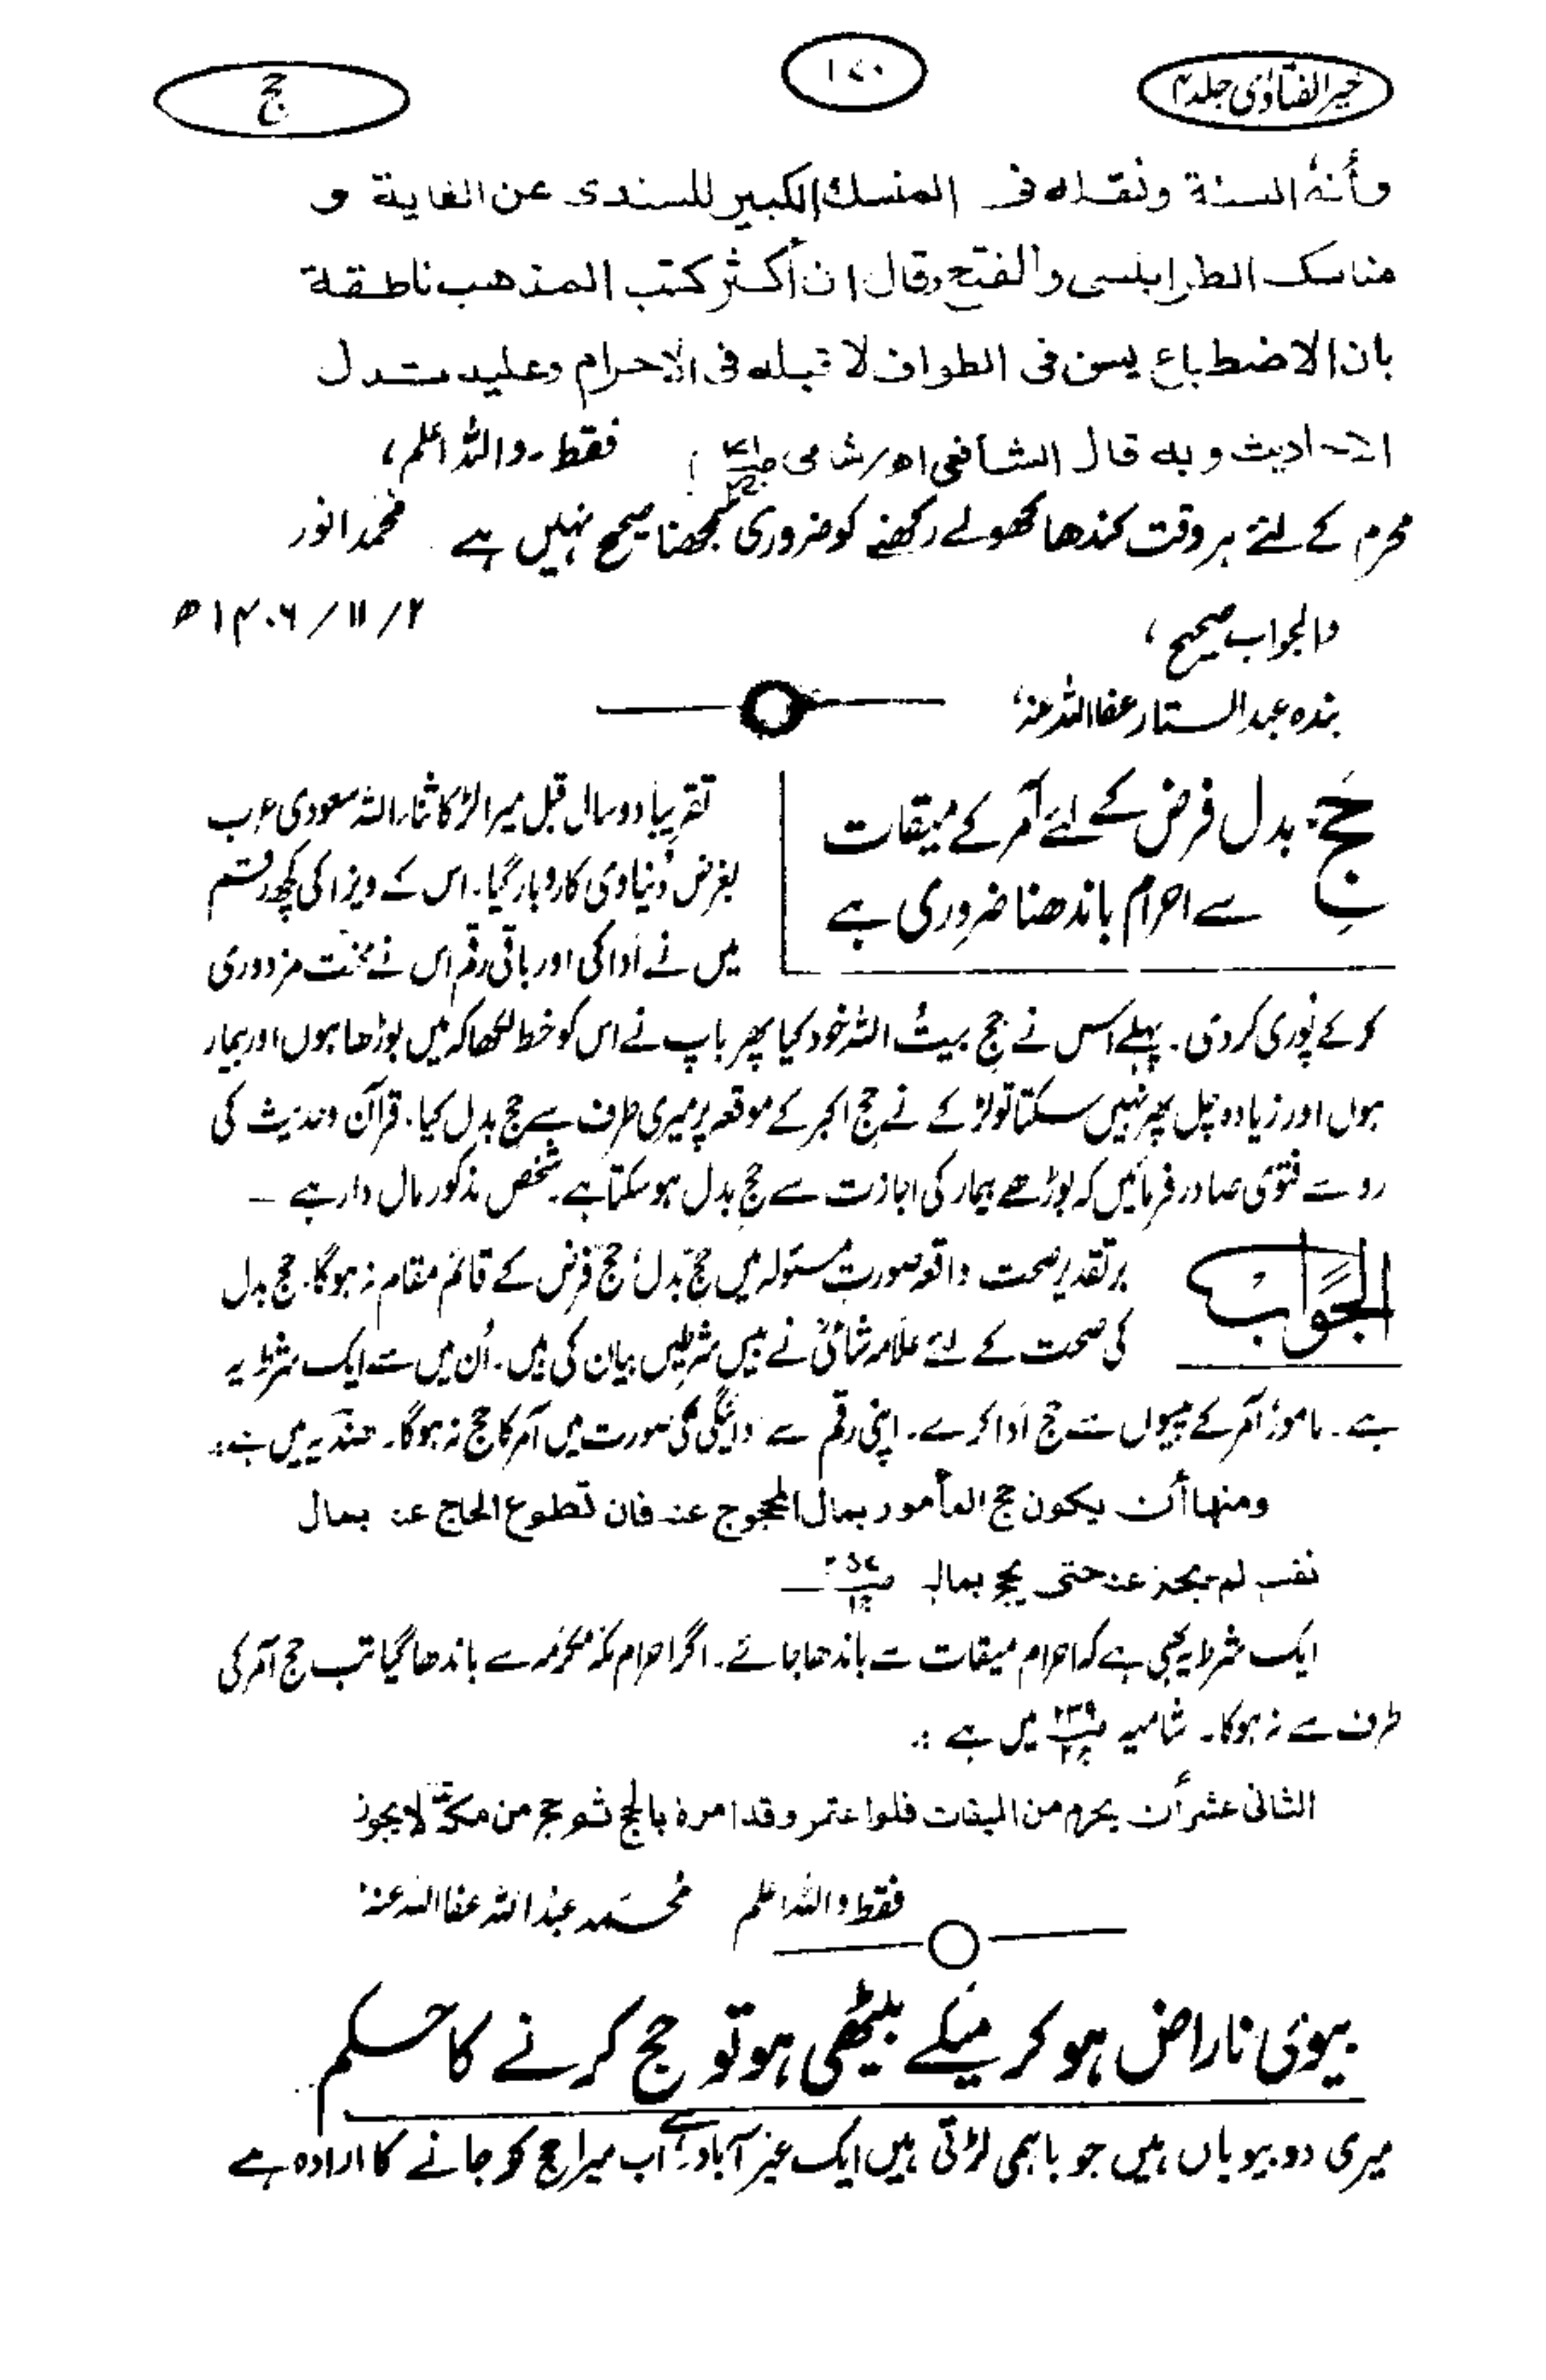 خیر الفتاوی جلد ۴
۱۷۰
حج
وأنهٗ السنة ونقله فی المنسك الکبیر للسندی عن الغایة و
مناسک الطرابلسی والفتح وقال ان أکثر کتب المذهب ناطقة
بان الاضطباع یسن فی الطواف لا قبله فی الاحرام وعلیه تدل
الاحادیث وبه قال الشافعی اھ، شامی فقط۔ واللہ اعلم،
محرم کے لئے ہر وقت کندھا کھولے رکھنے کو ضروری سمجھنا صحیح نہیں ہے محمد انور
۲/ ۱۱/ ۱۴۰۶ھ
والجواب صحیح،
بندہ عبدالستار عفا اللہ عنہ،
حجِ بدل فرض کے لئے آمر کے میقات
سے احرام باندھنا ضروری ہے
تقریباً دو سال قبل میرا لڑکا ثناء اللہ سعودی عرب
بغرض دُنیاوی کاروبار گیا۔ اس کے ویزا کی کچھ رقم
میں نے اَدا کی اور باقی رقم اس نے محنت مزدوری
کر کے پوری کر دی۔ پہلے اس نے حج بیتُ اللہ خود کیا پھر باپ نے اس کو خط لکھا کہ میں بوڑھا ہوں اور بیمار
ہوں اور زیادہ چل پھر نہیں سکتا تو لڑکے نے حج اکبر کے موقعہ پر میری طرف سے حج بدل کیا۔ قرآن وحدیث کی
رو سے فتویٰ صادر فرمائیں کہ بوڑھے بیمار کی اجازت سے حج بدل ہو سکتا ہے۔ شخص مذکور مال دار ہے ۔
الجواب
برتقدیر صحت واقعہ صورت مسئولہ میں حج بدل، حج فرض کے قائم مقام نہ ہوگا۔ حج بدل
کی صحت کے لئے علامہ شامیؒ نے بیس شرطیں بیان کی ہیں۔ اُن میں سے ایک شرط یہ
ہے۔ مامور آمر کے پیسوں سے حج اَدا کرے۔ اپنی رقم سے ادائیگی کی صورت میں آمر کا حج نہ ہوگا۔ ھندیہ میں ہے:۔
ومنها أن یکون حج المأمور بمال المحجوج عنه فان تطوع الحاج عنه بمال
نفسه لم یجز عنه حتی یحج بماله
ایک شرط یہ بھی ہے کہ احرام میقات سے باندھا جائے۔ اگر احرام مکہ مکرمہ سے باندھا گیا تب حج آمر کی
طرف سے نہ ہوگا۔ شامیہ ۲۳۹ میں ہے :۔
الثانی عشر أن یحرم من المیقات فلو اعتمر وقد امره بالحج ثم حج من مکة لا یجوز
فقط واللہ اعلم محمد عبداللہ عفا اللہ عنہ
بیوی ناراض ہو کر میکے بیٹھی ہو تو حج کرنے کا حکم
میری دو بیویاں ہیں جو باہمی لڑتی ہیں ایک غیر آباد ہے اب میرا حج کو جانے کا ارادہ ہے